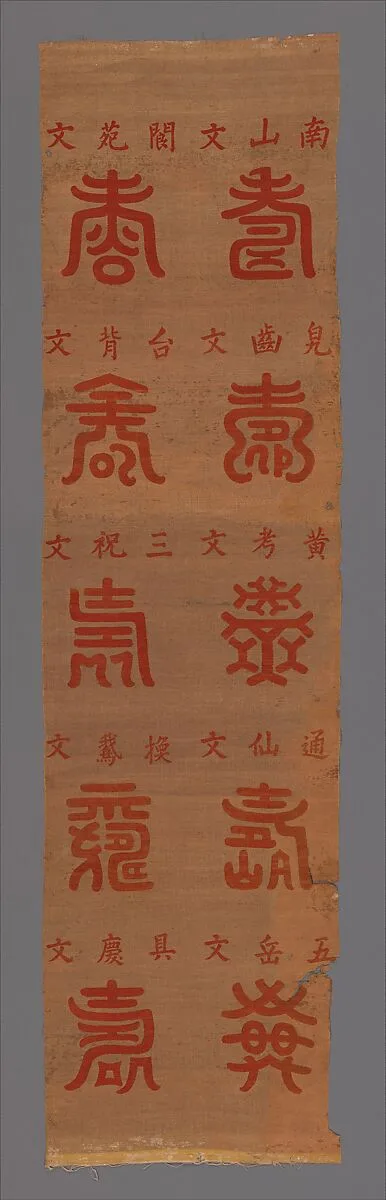 南山文 閬苑文
壽 壽
兒齒文 台背文
壽 壽
黄考文 三祝文
壽 壽
通仙文 換鵞文
壽 壽
五岳文 具慶文
壽 壽